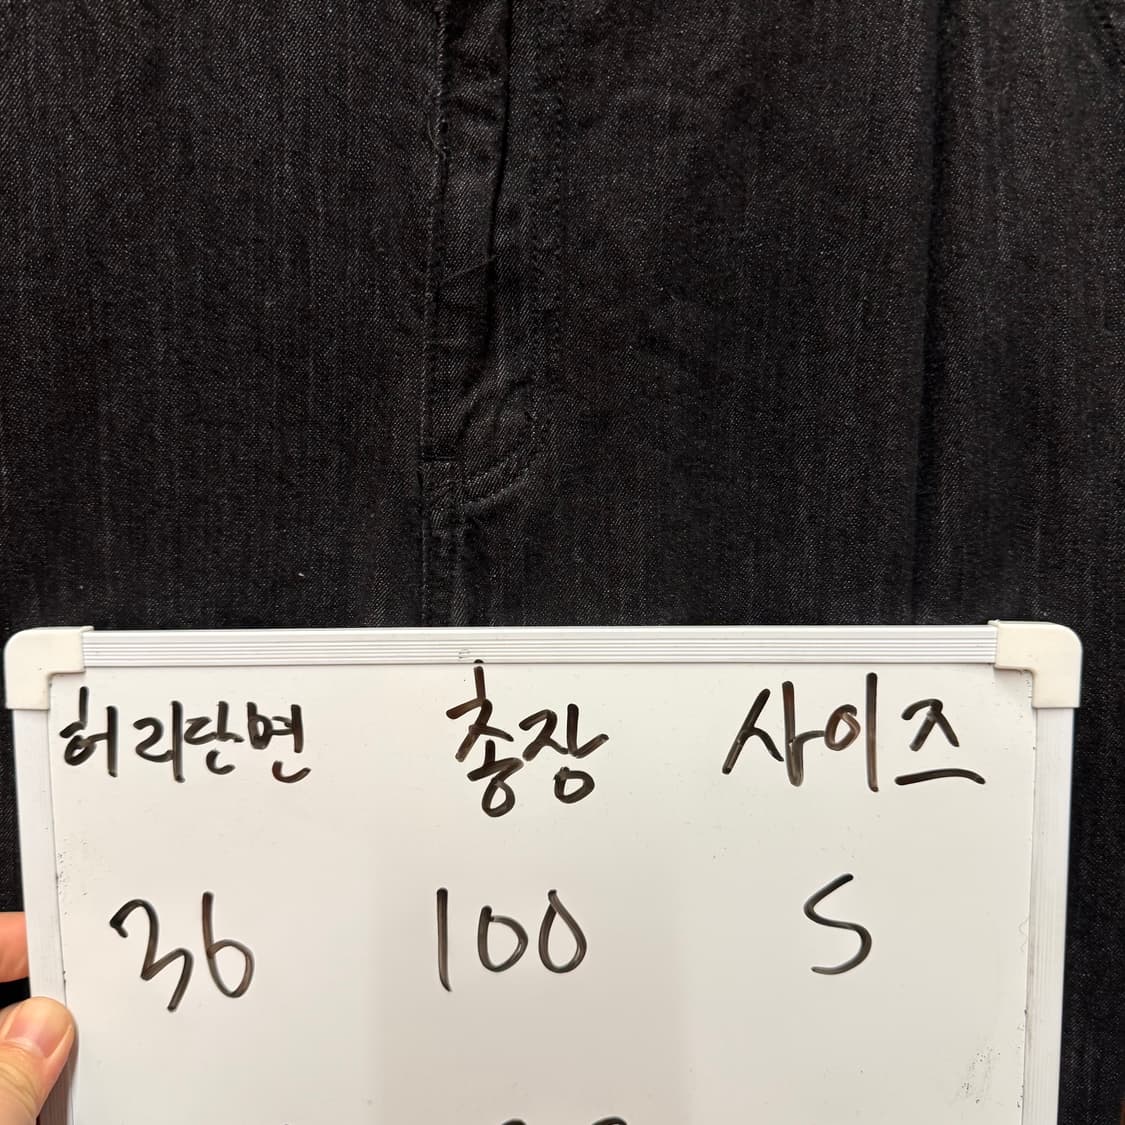 허리단면 총장 사이즈
36 100 S